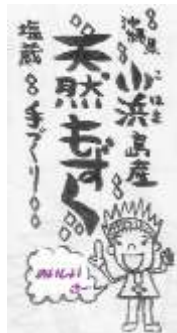 沖縄県
小浜島産
こはま
天然もずく
塩蔵
手づくり
おいしい
さー